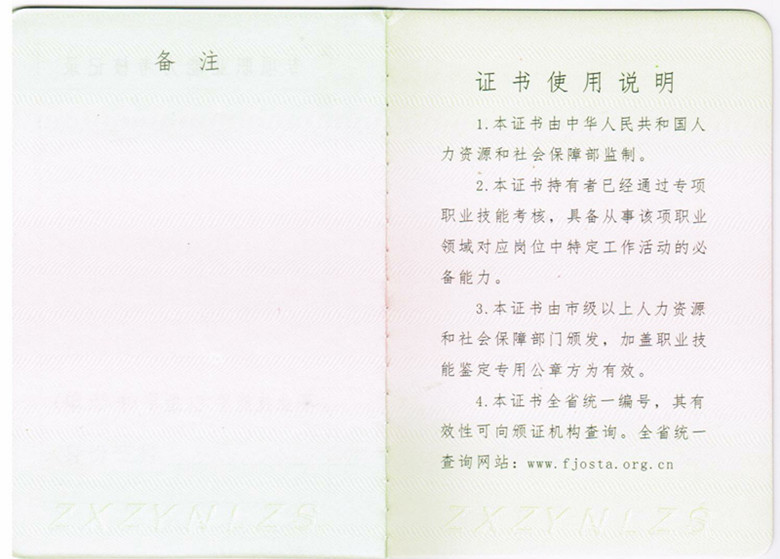 备注
证书使用说明
1.本证书由中华人民共和国人
力资源和社会保障部监制。
2.本证书持有者已经通过专项
职业技能考核，具备从事该项职业
领域对应岗位中特定工作活动的必
备能力。
3.本证书由市级以上人力资源
和社会保障部门颁发，加盖职业技
能鉴定专用公章方为有效。
4.本证书全省统一编号，其有
效性可向颁证机构查询。全省统一
查询网站：www.fjosta.org.cn
ZXZYNLZS
ZXZYNLZS